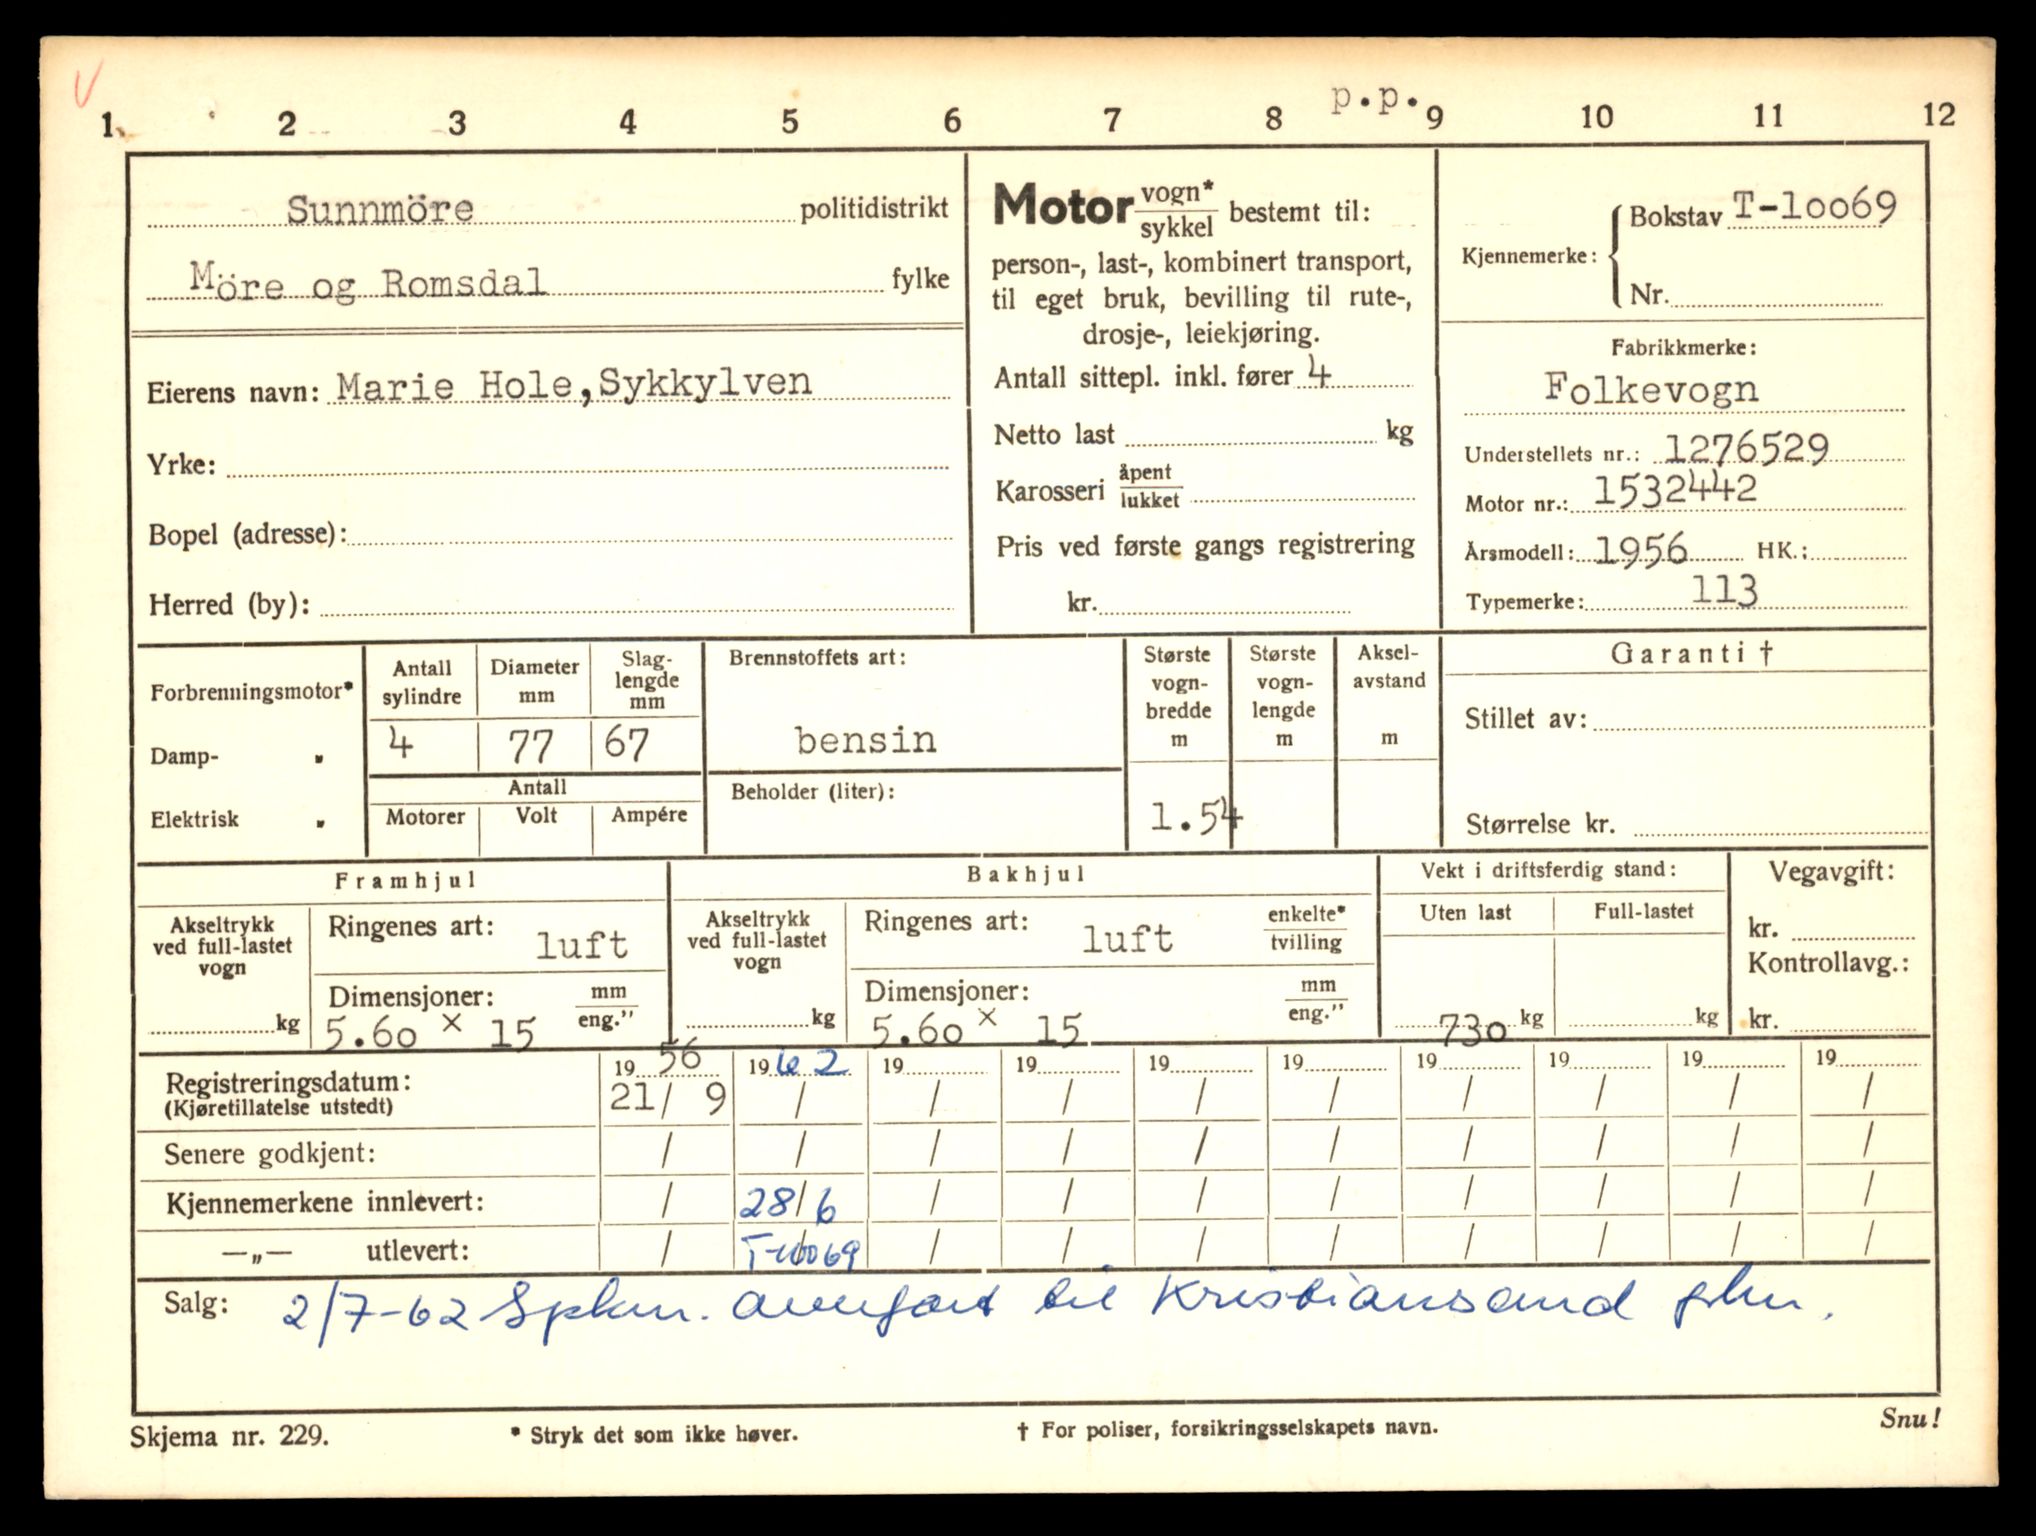 V
p.p.
1 2 3 4 5 6 7 8 9 10 11 12
Sunnmöre politidistrikt
Möre og Romsdal fylke
Eierens navn: Marie Hole, Sykkylven
Yrke:
Bopel (adresse):
Herred (by):
Motor vogn* / sykkel bestemt til:
person-, last-, kombinert transport,
til eget bruk, bevilling til rute-,
drosje-, leiekjøring.
Antall sittepl. inkl. fører 4
Netto last kg
Karosseri åpent / lukket
Pris ved første gangs registrering
kr.
Kjennemerke: Bokstav T-10069
Nr.
Fabrikkmerke:
Folkevogn
Understellets nr.: 1276529
Motor nr.: 1532442
Årsmodell: 1956 HK.:
Typemerke: 113
Forbrenningsmotor*
Damp- „
Elektrisk „
Antall sylindre
4
Diameter mm
77
Slag-lengde mm
67
Antall
Motorer Volt Ampére
Brennstoffets art:
bensin
Beholder (liter):
Største vogn-bredde m
1.54
Største vogn-lengde m
Aksel-avstand m
Garanti †
Stillet av:
Størrelse kr.
Framhjul
Akseltrykk ved full-lastet vogn
kg
Ringenes art: luft
Dimensjoner: mm / eng."
5.60 x 15
Bakhjul
Akseltrykk ved full-lastet vogn
kg
Ringenes art: luft enkelte* / tvilling
Dimensjoner: mm / eng."
5.60 x 15
Vekt i driftsferdig stand:
Uten last Full-lastet
730 kg kg
Vegavgift:
kr.
Kontrollavg.:
kr.
1956 1962 19 19 19 19 19 19 19 19
Registreringsdatum: 21/9 / / / / / / / / /
(Kjøretillatelse utstedt)
Senere godkjent: / / / / / / / / / /
Kjennemerkene innlevert: / 28/6 / / / / / / / /
—„— utlevert: / T-10069 / / / / / / / /
Salg: 2/7-62 Spkm. overført til Kristiansand
Skjema nr. 229.
* Stryk det som ikke høver.
† For poliser, forsikringsselskapets navn.
Snu!